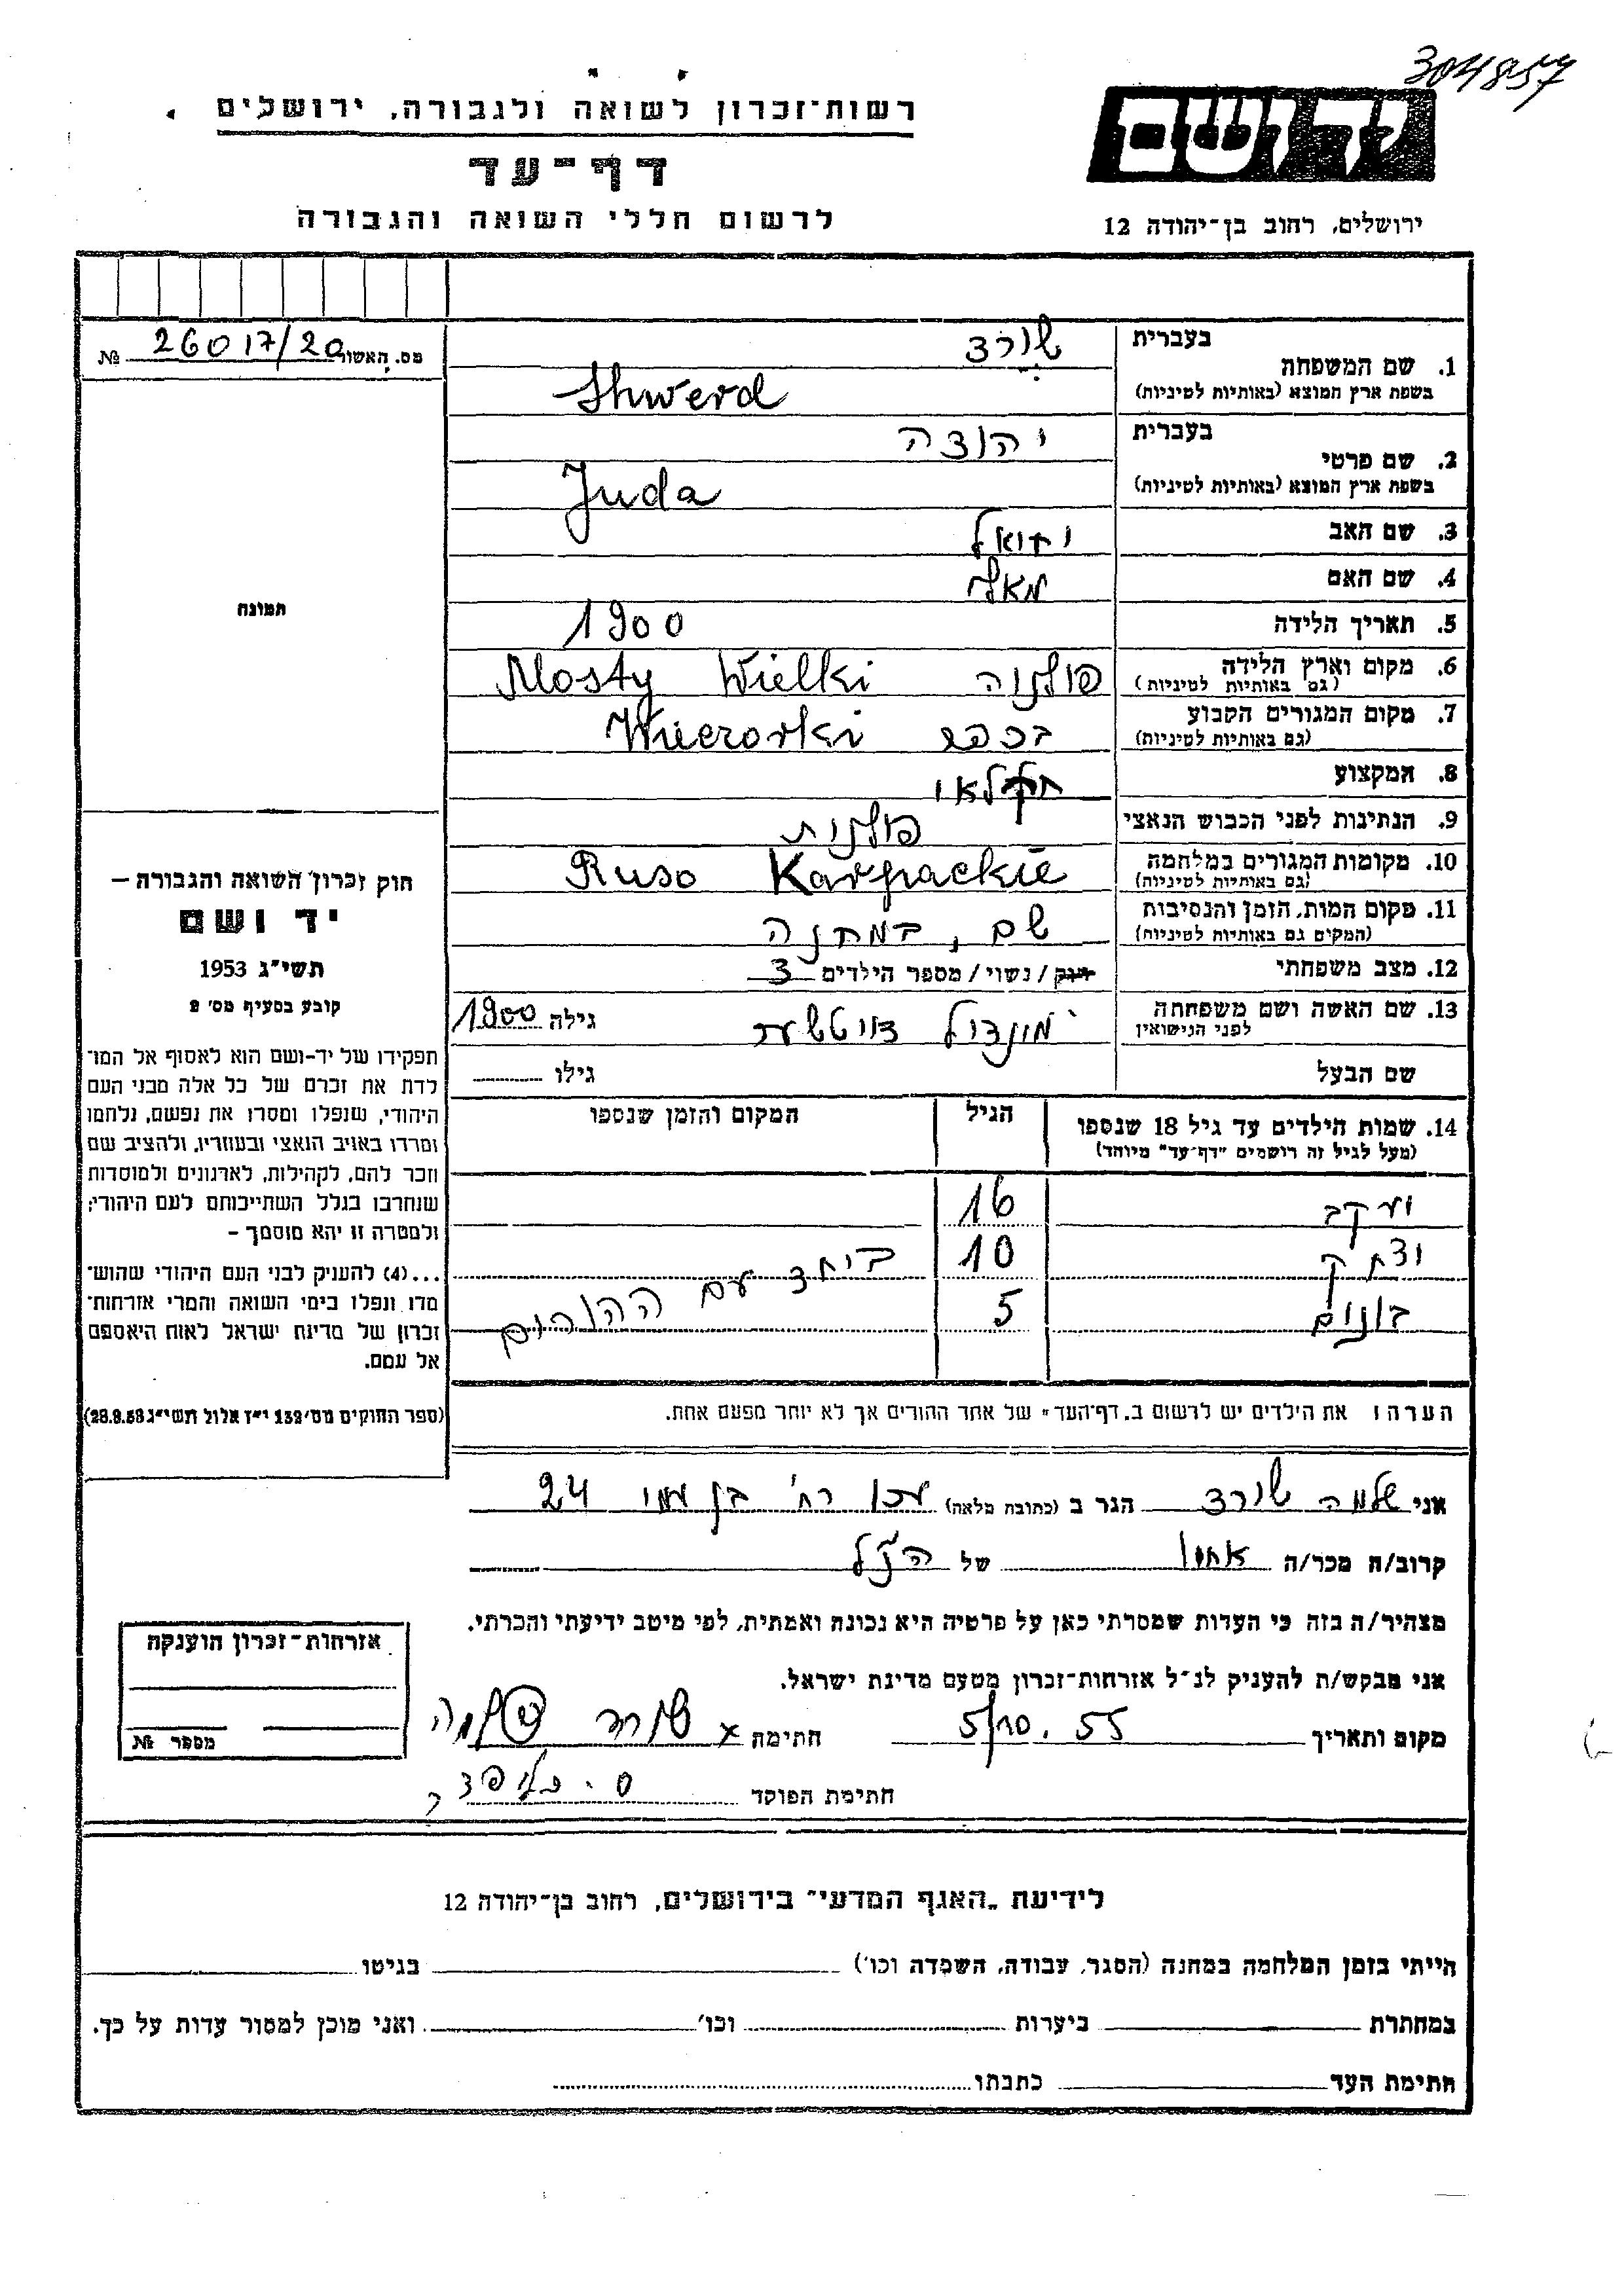 304857
יד ושם
רשות־זכרון לשואה ולגבורה, ירושלים
דף־עד
לרשום חללי השואה והגבורה
ירושלים, רחוב בן־יהודה 12
מס. האשור 26017/20 №
תמונה
חוק זכרון השואה והגבורה —
יד ושם
תשי״ג 1953
קובע בסעיף מס׳ 2
תפקידו של יד-ושם הוא לאסוף אל המו־
לדת את זכרם של כל אלה מבני העם
היהודי, שנפלו ומסרו את נפשם, נלחמו
ומרדו באויב הנאצי ובעוזריו, ולהציב שם
וזכר להם, לקהילות, לארגונים ולמוסדות
שנחרבו בגלל השתייכותם לעם היהודי;
ולמטרה זו יהא מוסמך –
...(4) להעניק לבני העם היהודי שהוש־
מדו ונפלו בימי השואה והמרי אזרחות־
זכרון של מדינת ישראל לאות היאספם
אל עמם.
(ספר החוקים מס׳ 132 י״ז אלול תשי״ג 28.8.53)
בעברית שורד
1. שם המשפחה
בשפת ארץ המוצא (באותיות לטיניות) Shwerd
בעברית יהודה
2. שם פרטי
בשפת ארץ המוצא (באותיות לטיניות) Juda
3. שם האב
4. שם האם
5. תאריך הלידה 1900
6. מקום וארץ הלידה פולניה Mosty Wielki
(גם באותיות לטיניות)
7. מקום המגורים הקבוע בכפר
(גם באותיות לטיניות)
8. המקצוע חקלאי
9. הנתינות לפני הכבוש הנאצי פולנית
10. מקומות המגורים במלחמה Ruso Karpackie
(גם באותיות לטיניות)
11. מקום המות, הזמן והנסיבות שם, במחנה
(המקום גם באותיות לטיניות)
12. מצב משפחתי רווק / נשוי / מספר הילדים 3
13. שם האשה ושם משפחתה גילה 1900
לפני הנישואין
שם הבעל גילו
14. שמות הילדים עד גיל 18 שנספו הגיל המקום והזמן שנספו
(מעל לגיל זה רושמים "דף־עד" מיוחד)
יעקב 16
יצחק 10 ביחד עם ההורים
בונים 5
הערה: את הילדים יש לרשום ב„דף־העד" של אחד ההורים אך לא יותר מפעם אחת.
אני שלמה שורד הגר ב (כתובת מלאה) עכו רח׳ בן עמי 24
קרוב/ה מכר/ה אחיו של הנ״ל
מצהיר/ה בזה כי העדות שמסרתי כאן על פרטיה היא נכונה ואמתית, לפי מיטב ידיעתי והכרתי.
אני מבקש/ת להעניק לנ״ל אזרחות־זכרון מטעם מדינת ישראל.
מקום ותאריך 5/10.55 חתימה x שורד שלמה
חתימת הפוקד
אזרחות־זכרון הוענקה
מספר №
לידיעת „האגף המדעי" בירושלים, רחוב בן־יהודה 12
הייתי בזמן המלחמה במחנה (הסגר, עבודה, השמדה וכו׳) בגיטו
במחתרת ביערות וכו׳ ואני מוכן למסור עדות על כך.
חתימת העד כתבתו